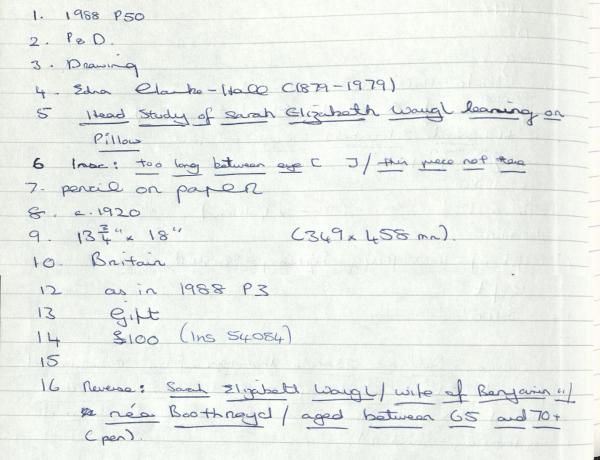 1. 1988 P50
2. P&D.
3. Drawing
4. Edna Clarke-Hall (1879-1979)
5 Head Study of Sarah Elizabeth Waugh leaning on
Pillow
6 Insc: too long between eye [ ]/ this piece not there
7. pencil on paper
8. c.1920
9. 13 3/4" x 18" (349 x 458 mm).
10. Britain
12 as in 1988 P3
13 Gift
14 £100 (Ins 54084)
15
16 Reverse: Sarah Elizabeth Waugh / wife of Benjamin "/
née Boothroyd / aged between 65 and 70+
(pen).